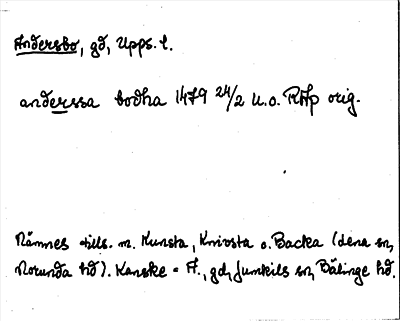 Andersbo, gd, Upps. l.
anderssa bodha 1479 24/2 u.o. RAp orig.
Nämnes tills. m. Kunsta, Knivsta o. Backa (Lena sn,
Norunda hd). Kanske = A., gd, Jumkils sn, Bälinge hd.